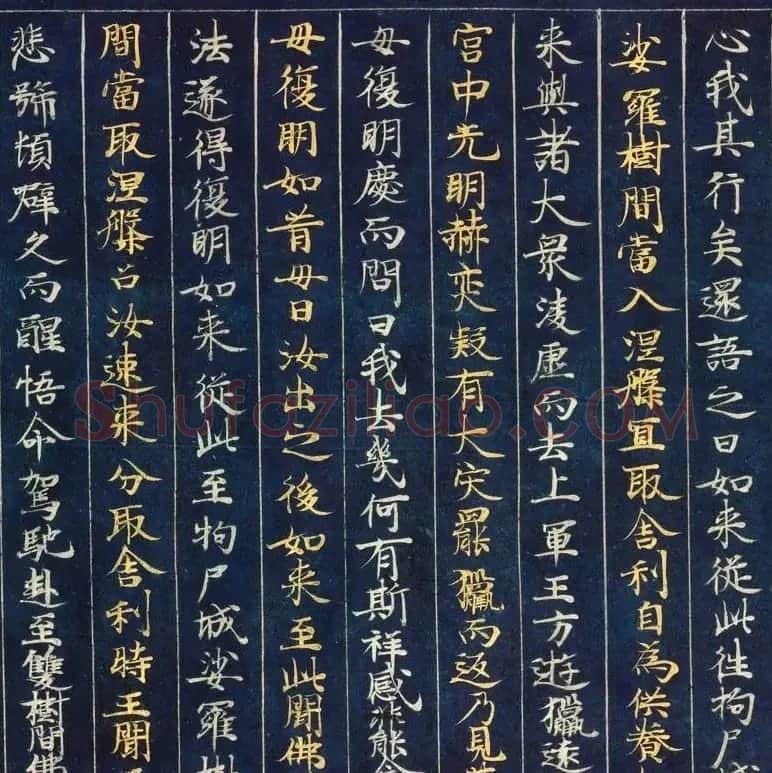 心我其行矣還語之曰如来從此往拘尸
娑羅樹間當入涅槃宜取舍利自為供養
来與諸大衆凌虛而去上軍王方遊獵遠
宮中光明赫奕疑有火灾罷獵而返乃見
母復明慶而問曰我去幾何有斯祥感能
母復明如昔母曰汝出之後如来至此聞佛
法遂得復明如来從此至拘尸城娑羅樹
間當取涅槃召汝速来分取舍利時王聞
悲號頓躃久而醒悟命駕馳赴至雙樹間佛
Shufaziliao.COM